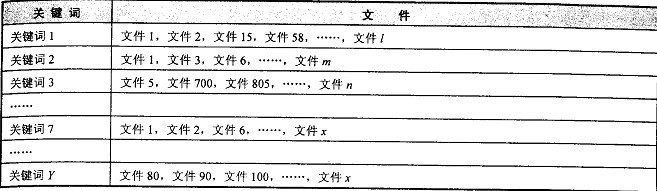 关键词 文件
关键词 1 文件 1，文件 2，文件 15，文件 58，……，文件 l
关键词 2 文件 1，文件 3，文件 6，……，文件 m
关键词 3 文件 5，文件 700，文件 805，……，文件 n
……
关键词 7 文件 1，文件 2，文件 6，……，文件 x
……
关键词 Y 文件 80，文件 90，文件 100，……，文件 x